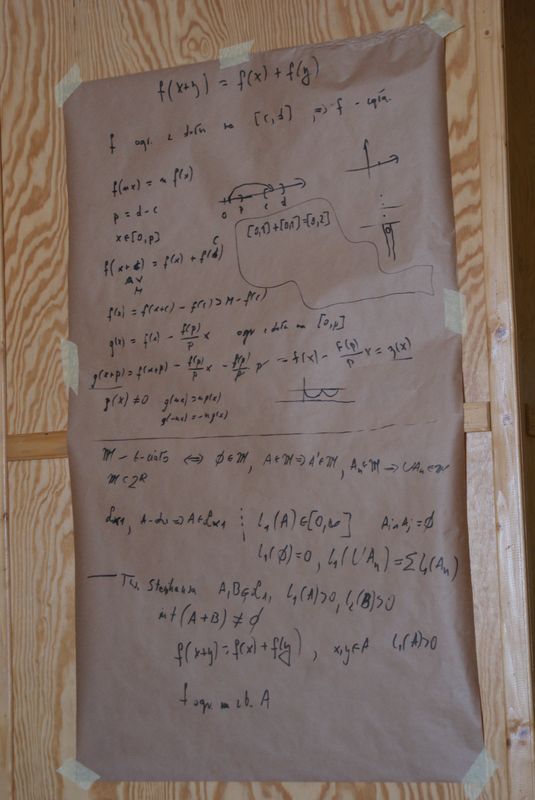 f(x+y) = f(x) + f(y)
f ogr. z dołu na [c,d] ⇒ f - ciągła.
f(nx) = n f(x)
p = d - c
x ∈ [0,p]
0 p c d
[0,1]+[0,1]=[0,2]
f(x+c) = f(x) + f(c)
M
f(x) = f(x+c) - f(c) ≥ M - f(c)
g(x) = f(x) - f(p)/p x ogr z dołu na [0,p]
g(x+p) = f(x+p) - f(p)/p x - f(p)/p p = f(x) - f(p)/p x = g(x)
g(x) ≠ 0 g(nx) = n g(x)
g(-nx) = -n g(x)
M - σ-ciało ⇔ ∅ ∈ M, A ∈ M ⇒ A' ∈ M, Aₙ ∈ M ⇒ ∪Aₙ ∈ M
M ⊂ 2^R
l₁(A) ∈ [0,∞] Aᵢ ∩ Aⱼ = ∅
l₁(∅) = 0, l₁(∪Aₙ) = ∑ l₁(Aₙ)
Tw. Steinhausa A, B ∈ L₁, l₁(A) > 0, l₁(B) > 0
int(A+B) ≠ ∅
f(x+y) = f(x) + f(y), x,y ∈ A l₁(A) > 0
f ogr. na zb. A